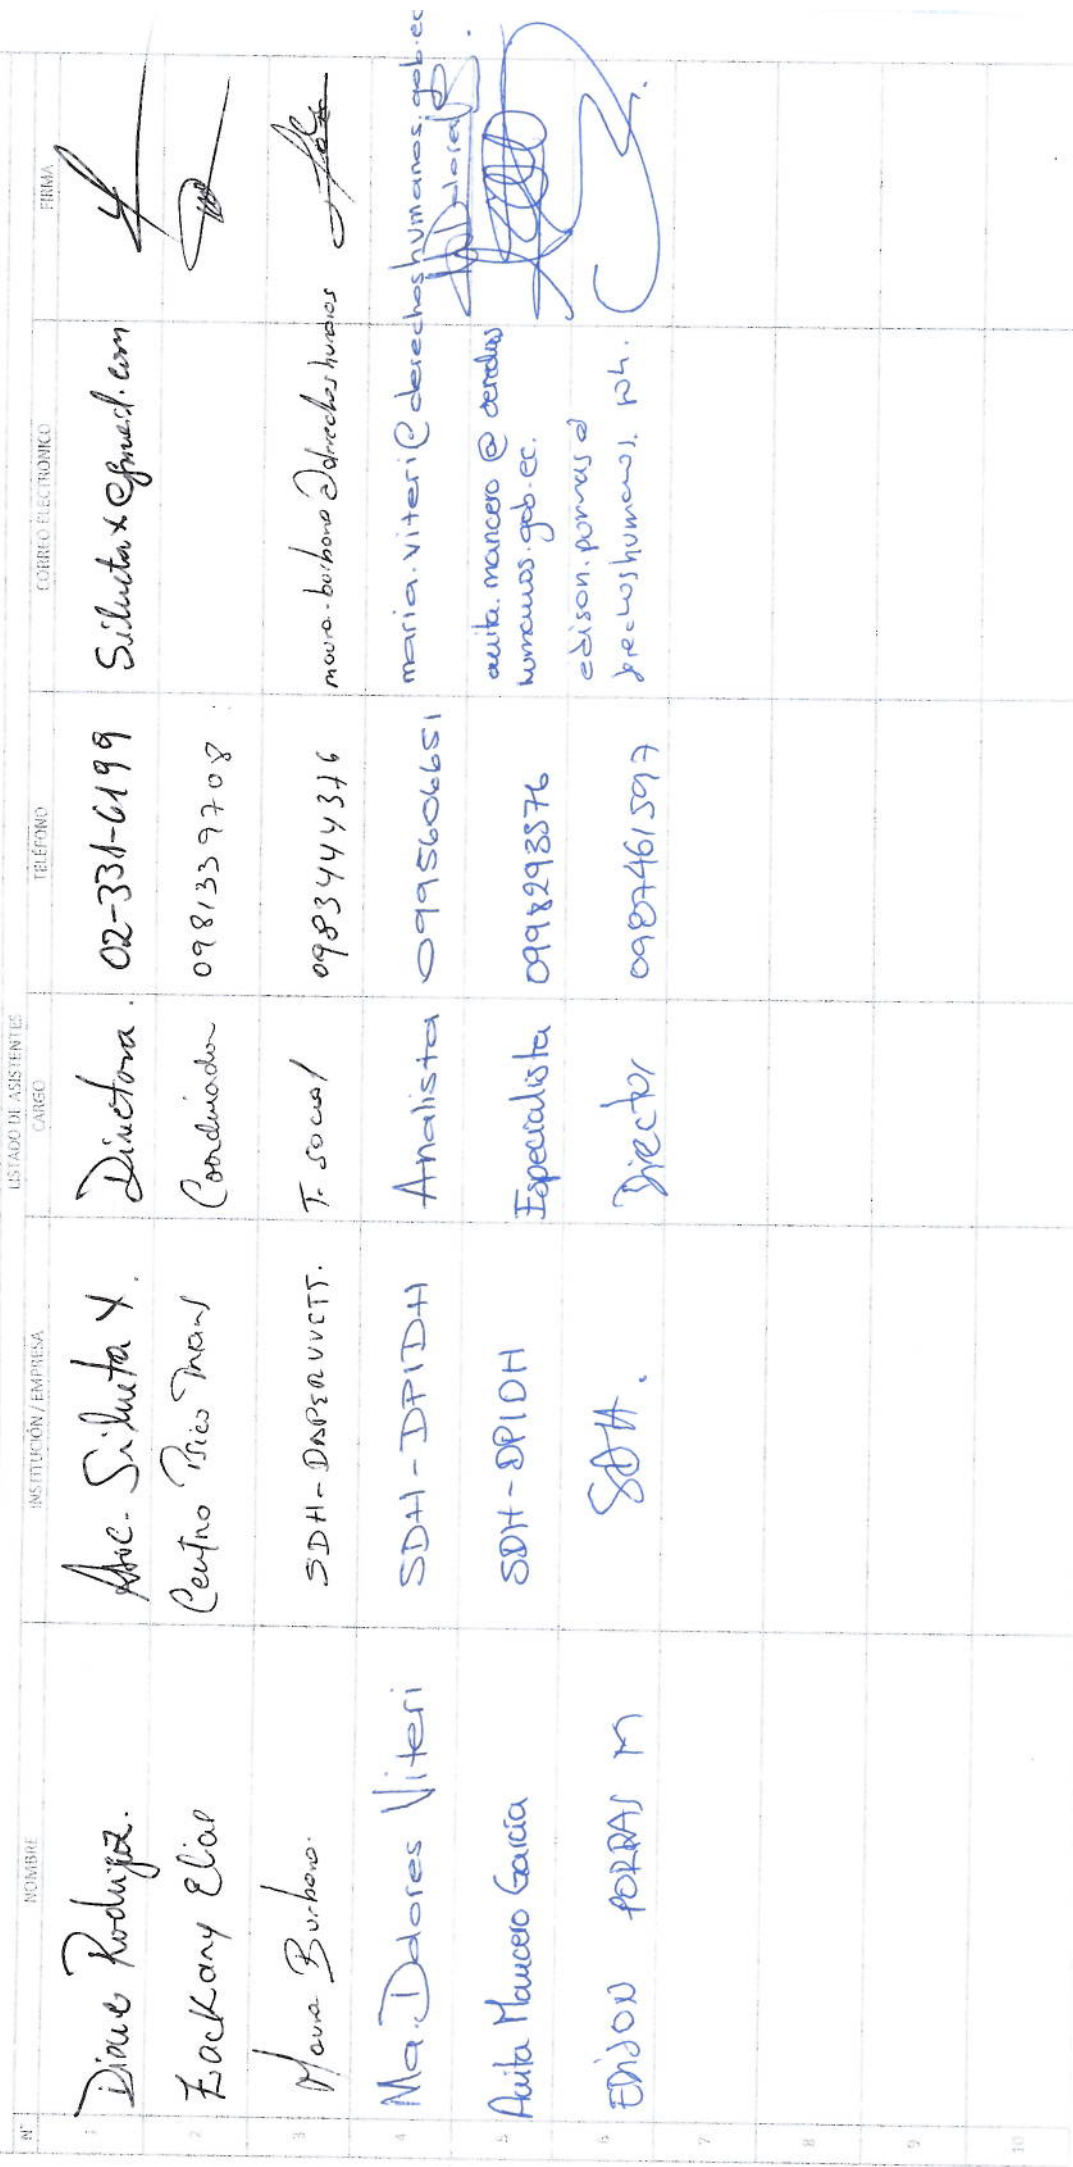 LISTADO DE ASISTENTES
N° NOMBRE INSTITUCIÓN / EMPRESA CARGO TELÉFONO CORREO ELECTRONICO FIRMA
1 Diane Rodríguez. Asoc. Silueta X. Directora. 02-331-6199 Siluetax@gmail.com
2 Zackary Elias Centro Psico Trans Coordinador 0981339708
3 Maura Burbano. SDH-DAPERVVCTT. T. social 0983444376 maura.burbano@derechoshumanos
4 Ma. Dolores Viteri SDH-DPIDH Analista 0995606651 maria.viteri@derechoshumanos.gob.ec
5 Anita Mancero García SDH-DPIDH Especialista 0998293576 anita.mancero@derechos
humanos.gob.ec.
6 EDISON PORRAS M SDH. Director 0987461597 edison.porras@
derechoshumanos.
7
8
9
10